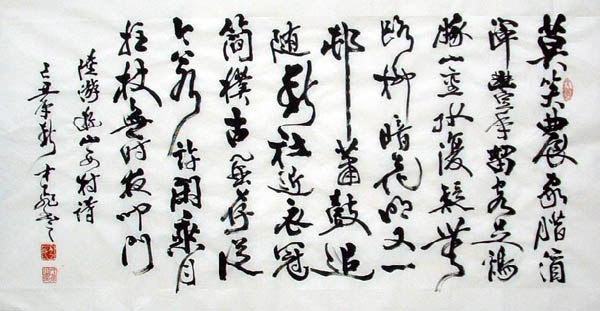 莫笑農家臘酒
渾豐年留客足鷄
豚山重水復疑無
路柳暗花明又一
邨簫鼓追
随春社近衣冠
簡樸古風存從
今若許閑乘月
拄杖無時夜叩門
陸游遊山西村詩
己丑年春